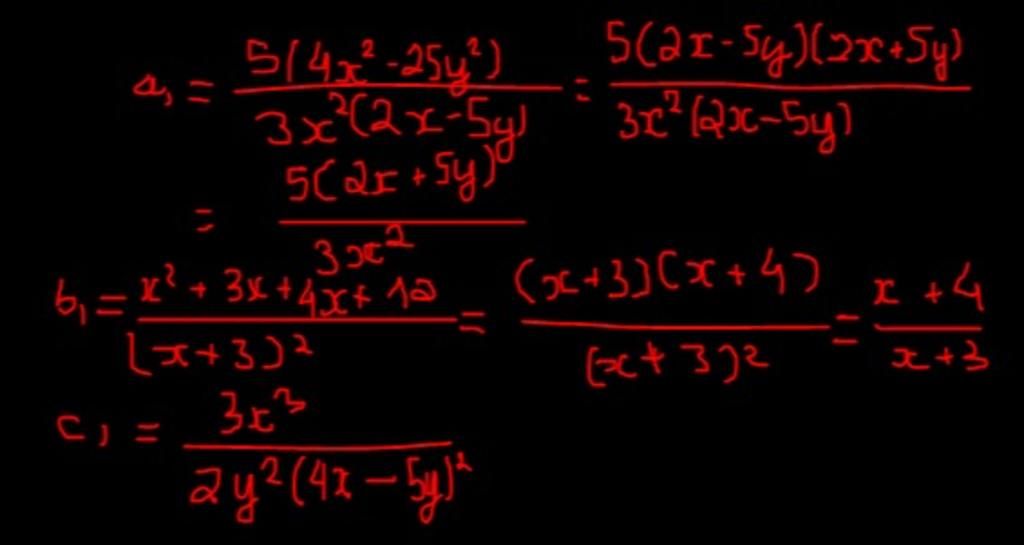 a, = 5(4x²-25y²) / 3x²(2x-5y) = 5(2x-5y)(2x+5y) / 3x²(2x-5y)
= 5(2x+5y) / 3x²
b, = x²+3x+4x+12 / (x+3)² = (x+3)(x+4) / (x+3)² = x+4 / x+3
c, = 3x³ / 2y²(4x-5y)²